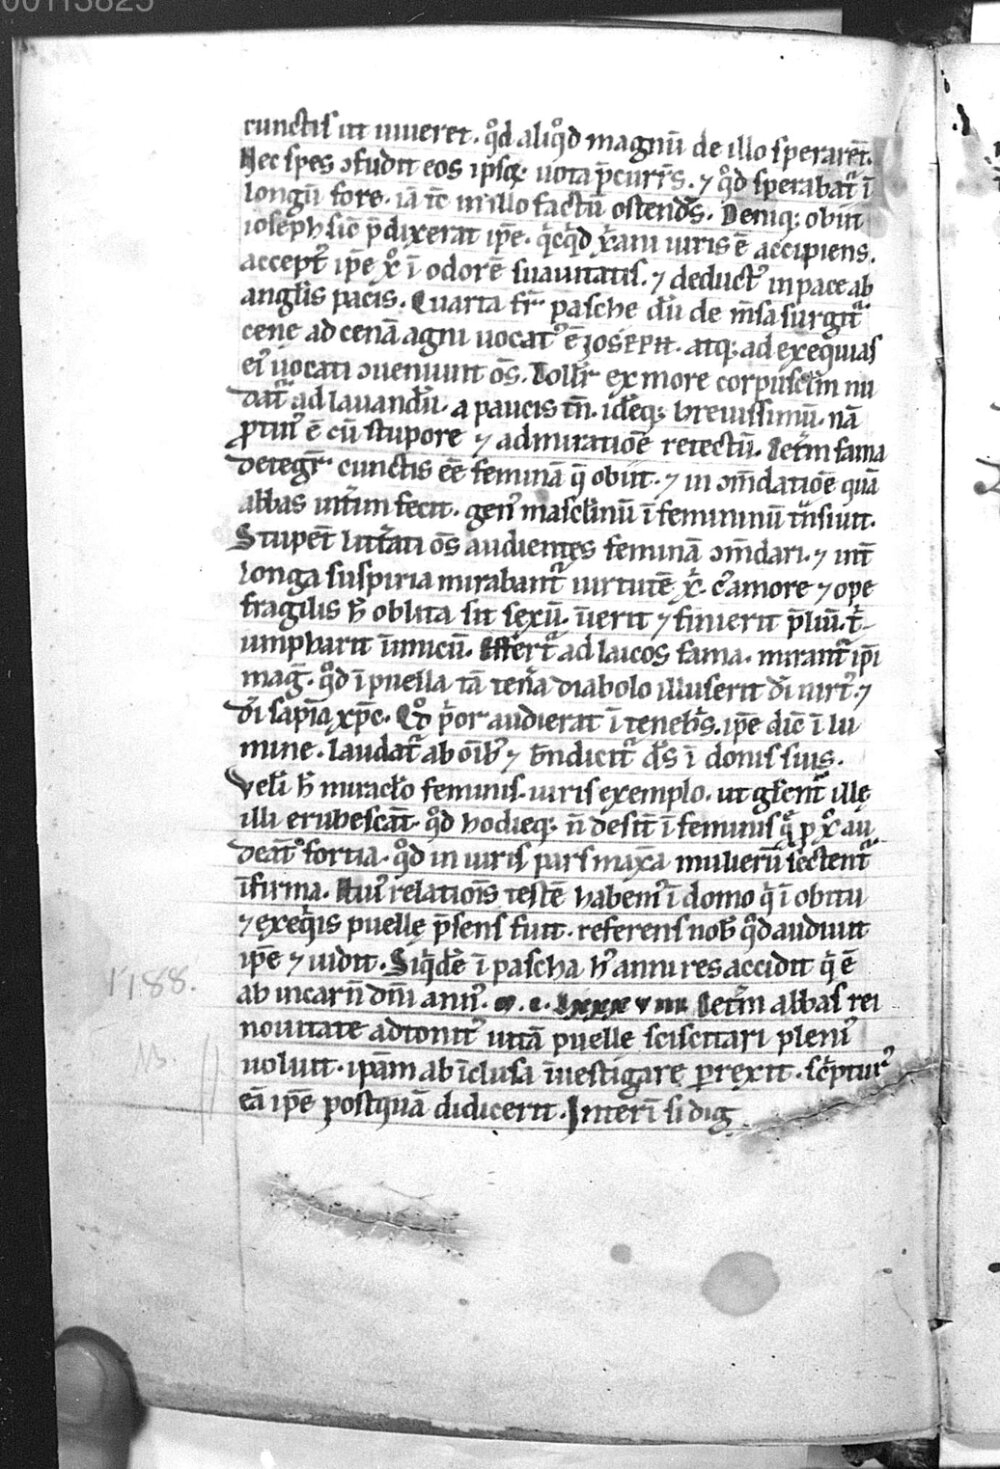 00113825
cunctis ut uiueret. qd̾ aliqd̾ magnū de illo sperarēt.
Nec spes ɔfudit eos ip̄sq; uota p̄curr̄s. ⁊ qd̾ sperabat᷑ ī
longū fore. iā tc̄ in illo factū ostend̄s. Deniq; obiit
ioseph sic̄ p̄dixerat ip̄e. qͥcqͥd xp̄iani uiris ē accipiens.
accept᷒ ip̄e xͦ ī odorē suauitatis. ⁊ deduct᷒ in pace ab
angl̄is pacis. Quarta fr̄ pasche dū de m̄sa surgit᷑
cene ad cenā agni uocat᷒ ē ioseph. atq; ad exequias
ei᷒ uocati ɔueniunt om̄s. Tollit᷑ ex more corpuscl̄m nu
dat᷑ ad lauandū. a paucis tn̄. id̄eq; breuissimū. nā
ꝓtin᷒ ē cū stupore ⁊ admiratiōe retectū. Int̄im fama
deteg̅ cunctis eē feminā q̄ obiit. ⁊ in ɔm̄datiōe quā
abbas int̄im fecit. gen᷒ mascl̄inū ī femininū tn̄siuit.
Stupēt litt̄ati om̄s audientes feminā ɔm̄dari. ⁊ int̄
longa suspiria mirabant᷑ uirtutē xͥ. c᷒ amore ⁊ ope
fragilis h̄ oblita sit sexū. inierit ⁊ finierit p̄liū. tͥ
umpharit inimicū. Effert᷑ ad laicos fama. mirant᷑ ip̄i
mag̅. qd̾ ī puella tā ten̄a diabolo illuserit dī uirt᷒ ⁊
dī sapīa xp̄c. Qd̾ pͥor audierat ī tenebͥs. ip̄e dic̄ ī lu
mine. laudat᷑ ab oīb᷒ ⁊ bn̄dicit᷑ d̄s ī donis suis.
Vel h̄ miracl̄o feminis. uiris exemplo. ut gl̄ient᷑ ille
illi erubescāt. qd̾ hodieq; n̄ desīt ī feminis q̄ ꝓ xͦ au
deāt fortia. qd̾ in uiris pars maxīa mulierū sectent᷑
īfirma. Hui᷒ relatiōis testē habem᷒ ī domo qͥ ī obitu
⁊ exeqͥis puellę p̄sens fuit. referens nob̄ qd̾ audiuit
ip̄e ⁊ uidit. Siqͥdē ī pascha h᷒ anni res accidit qͥ ē
ab incarn̄ dn̄i ann᷒. m. c. lxxx viii Int̄im abbas rei
nouitate adtonit᷒ uitā puelle sciscitari pleni᷒
uoluit. ip̄am ab īclusa īuestigare ꝑrexit. sc̄ptur᷒
eā ip̄e postquā didicerit. Interī si dig
1188.